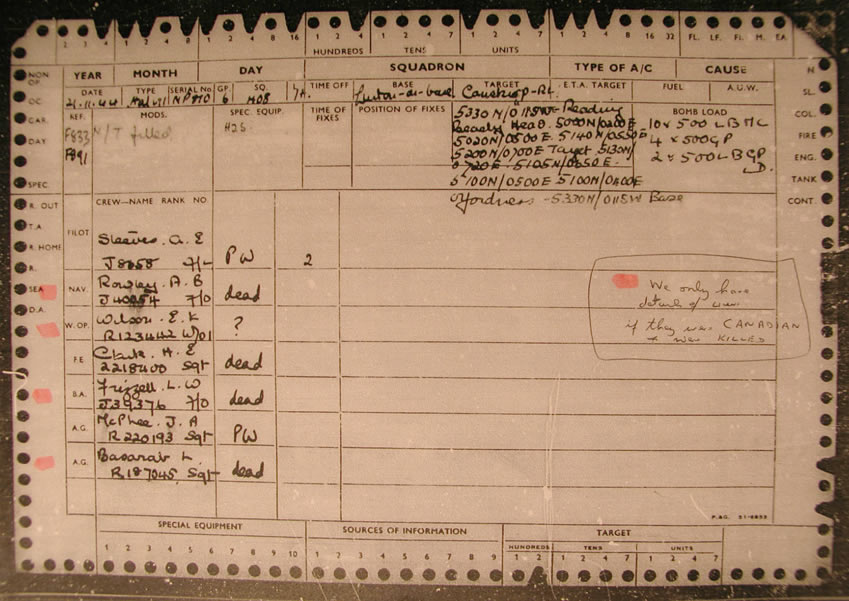 2 3 4 1 2 4 8 1 2 4 8 16 1 2 4 8 1 2 4 7 1 2 4 7 16 32 FL. LF. FL. M. EA.
HUNDREDS TENS UNITS
NON OP. YEAR MONTH DAY SQUADRON TYPE OF A/C CAUSE N
DATE TYPE SERIAL No. GP. SQ. TIME OFF BASE TARGET E.T.A. TARGET FUEL A.U.W. SL.
OC. 21.11.44 NP810 6 408 Castrop-R
REF. MODS. SPEC. EQUIP. TIME OF FIXES POSITION OF FIXES BOMB LOAD COL.
GAR. 5330N/0115W - Reading 10 x 500 LB MC
F833 N/T filled H2S Beachy Head. 5000N/0200E 4 x 500GP FIRE
DAY 5020N/0500E 5140N/0550E
F991 5200N/0700E Target 5130N/ 2 x 500 LB GP ENG.
0720E. 5105N/0650E. LD.
SPEC. 5100N/0500E 5100N/0400E TANK
R. OUT CREW—NAME RANK NO. Orfordness - 5330N/0115W Base CONT.
T.A.
PILOT Sleeves. A. E
R. HOME
R. F/L PW 2
SEA NAV. Rowley. A. B
J40054 F/O dead
D.A.
W.OP. Wilson. E. K
R123442 W/O1 ?
F.E. Clark. H. E
2218400 Sgt dead
B.A. Frizzell. L. W
J39376 F/O dead
A.G. McPhee. J. A
R220193 Sgt PW
A.G. Basarab L.
R187045 Sgt dead
We only have
details of
if they were CANADIAN
& were KILLED
SPECIAL EQUIPMENT SOURCES OF INFORMATION TARGET
HUNDREDS TENS UNITS
1 2 3 4 5 6 7 8 9 10 1 2 3 4 5 6 7 8 9 1 2 1 2 4 7 1 2 4 7